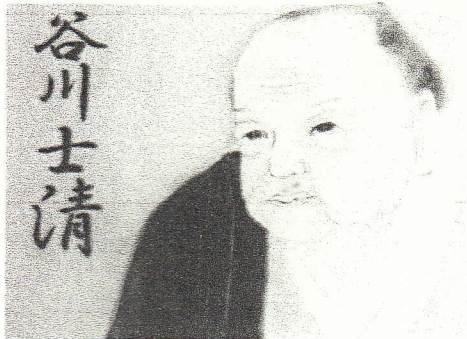 谷川士清